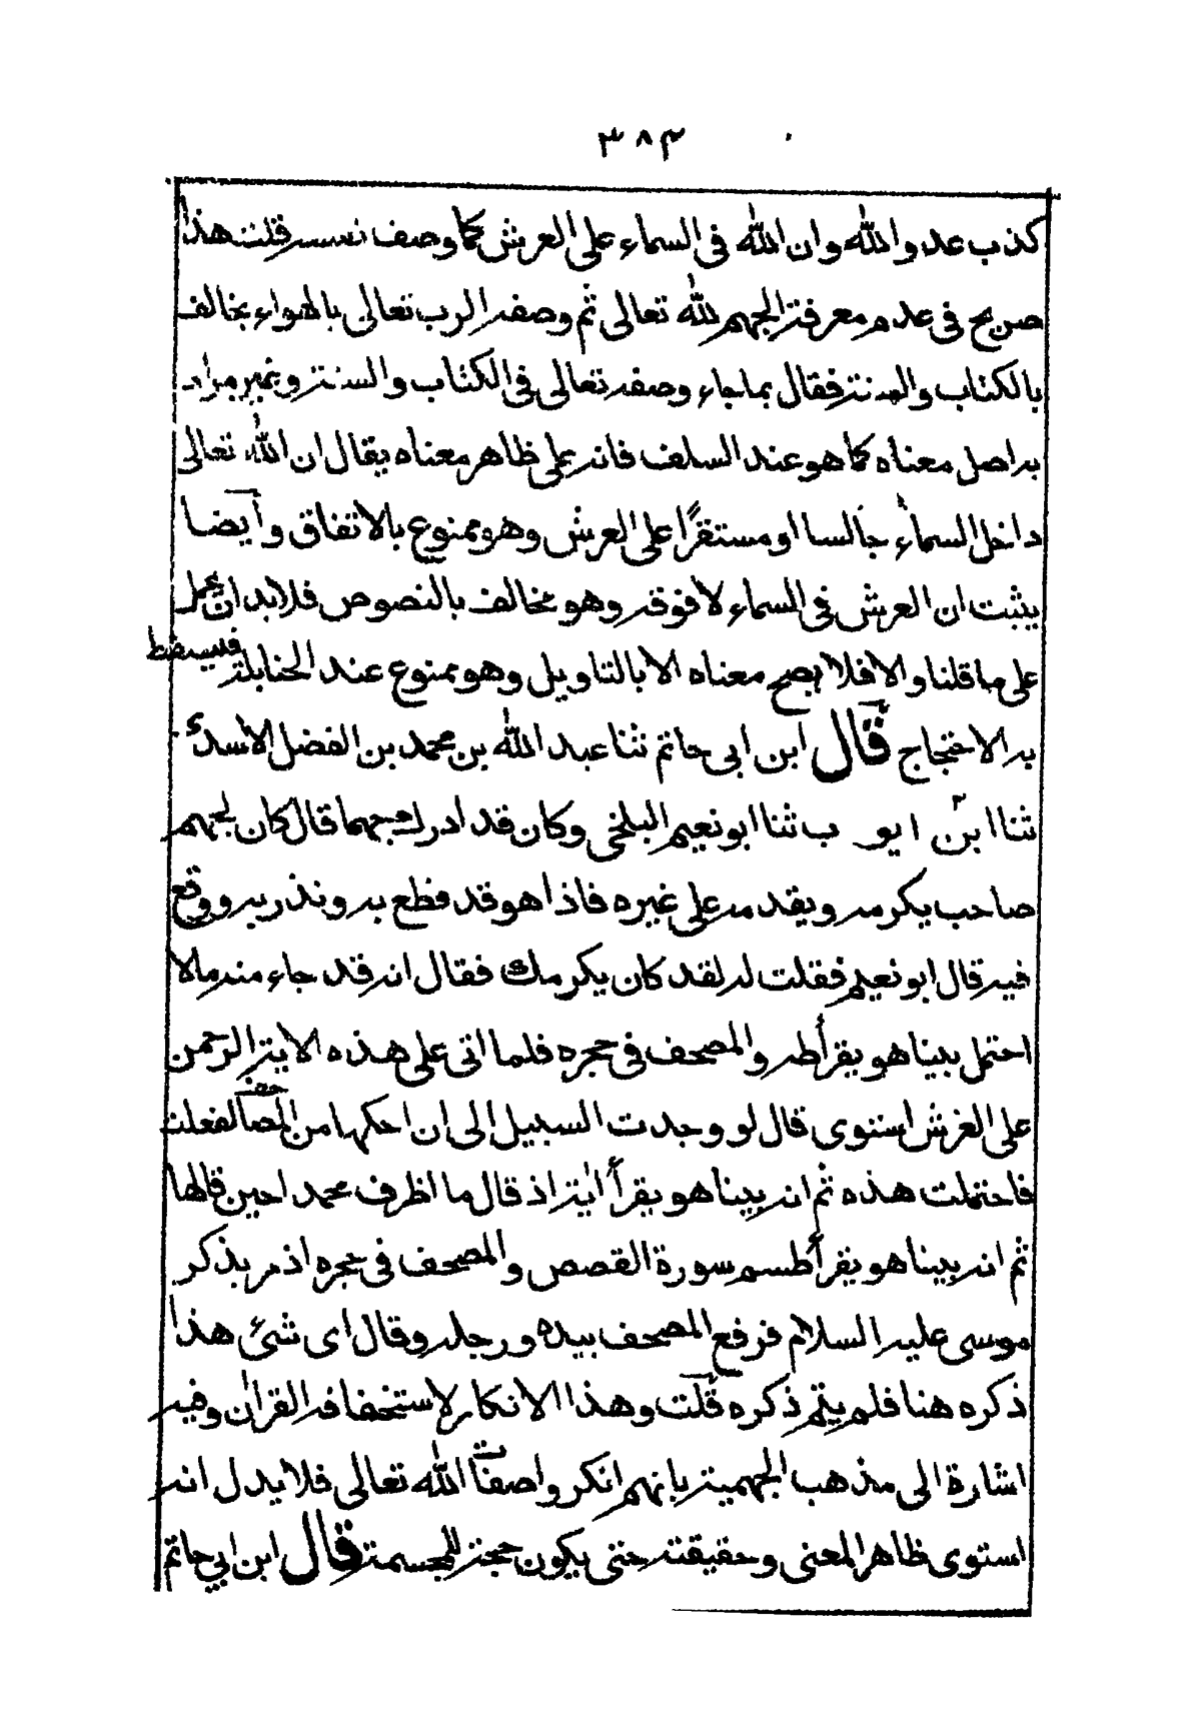 ٣٨٣
كذب عدو الله وان الله فى السماء على العرش كما وصف نفسه قلت هذا
صريح فى عدم معرفة الجهم لله تعالى ثم وصفه الرب تعالى بالهواء يخالف
بالكتاب والسنة فقال بما جاء وصفه تعالى فى الكتاب والسنة وبمير مراد
به اصل معناه كما هو عند السلف فانه على ظاهر معناه يقال ان الله تعالى
داخل السماء جالسا او مستقرًا على العرش وهو ممنوع بالاتفاق وأيضا
يثبت ان العرش فى السماء لا فوقه وهو مخالف بالنصوص فلا بد ان يحمل
على ما قلنا والا فلا يصح معناه الا بالتاويل وهو ممنوع عند الحنابلة فليسقط
به الاحتجاج قال ابن ابى حاتم ثنا عبد الله بن محمد بن الفضل الاسدى
ثنا ابن ايو ب ثنا ابو نعيم البلخى وكان قد ادرك جهما قال كان لجهم
صاحب يكرمه ويقدمه على غيره فاذا هو قد قطع به ونذر به ووقع
فيه قال ابو نعيم فقلت له لقد كان يكرمك فقال انه قد جاء منه ما لا
احتمل بينا هو يقرأ طه والمصحف فى حجره فلما اتى على هذه الاية الرحمن
على العرش استوى قال لو وجدت السبيل الى ان احكها من المصاحف لفعلت
فاحتملت هذه ثم انه بينا هو يقرأ اٰية اذ قال ما اظرف محمد احين قالها
ثم انه بينا هو يقرأ طسم سورة القصص والمصحف فى حجره اذ مر بذكر
موسى عليه السلام فرفع المصحف بيده ورجله وقال اى شئ هذا
ذكره هنا فلم يتم ذكره قلت وهذا الانكار لاستخفافه القراٰن وفيه
اشارة الى مذهب الجهمية بانهم انكروا صفات الله تعالى فلا يدل انه
استوى ظاهر المعنى وحقيقته حتى يكون حجة للمجسمة قال ابن ابي حاتم